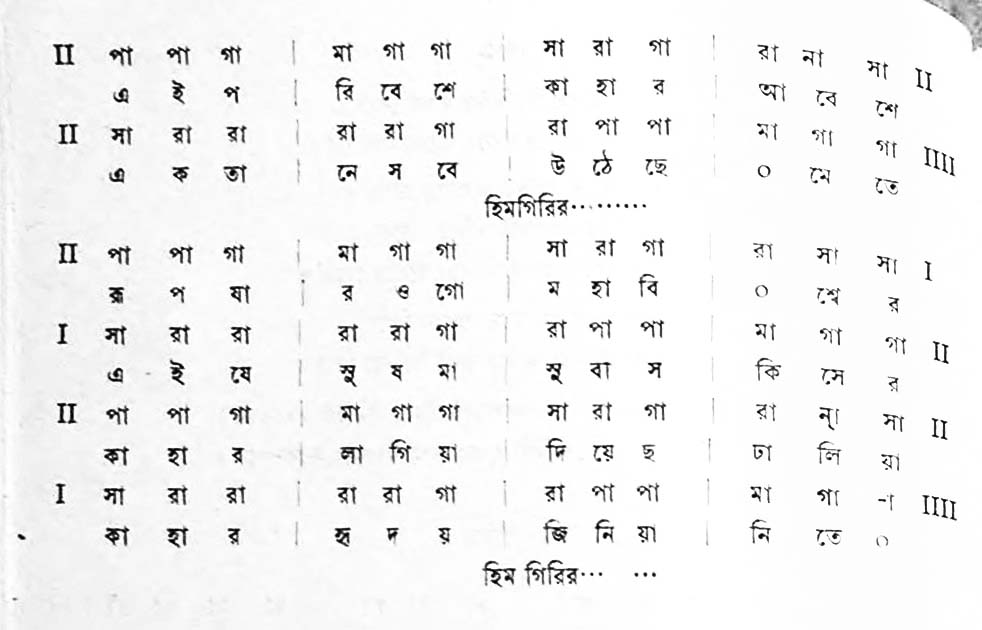 II পা পা গা | মা গা গা | সা রা গা | রা না সা II
এ ই প | রি বে শে | কা হা র | আ বে শে
II সা রা রা | রা রা গা | রা পা পা | মা গা গা IIII
এ ক তা | নে স বে | উ ঠে ছে | ০ মে তে
হিমগিরির·········
II পা পা গা | মা গা গা | সা রা গা | রা সা সা I
রূ প যা | র ও গো | ম হা বি | ০ শ্বে র
I সা রা রা | রা রা গা | রা পা পা | মা গা গা II
এ ই যে | সু ষ মা | সু বা স | কি সে র
II পা পা গা | মা গা গা | সা রা গা | রা ন্া সা II
কা হা র | লা গি য়া | দি য়ে ছ | ঢা লি য়া
I সা রা রা | রা রা গা | রা পা পা | মা গা -া IIII
কা হা র | হৃ দ য় | জি নি য়া | নি তে ০
হিম গিরির··· ···